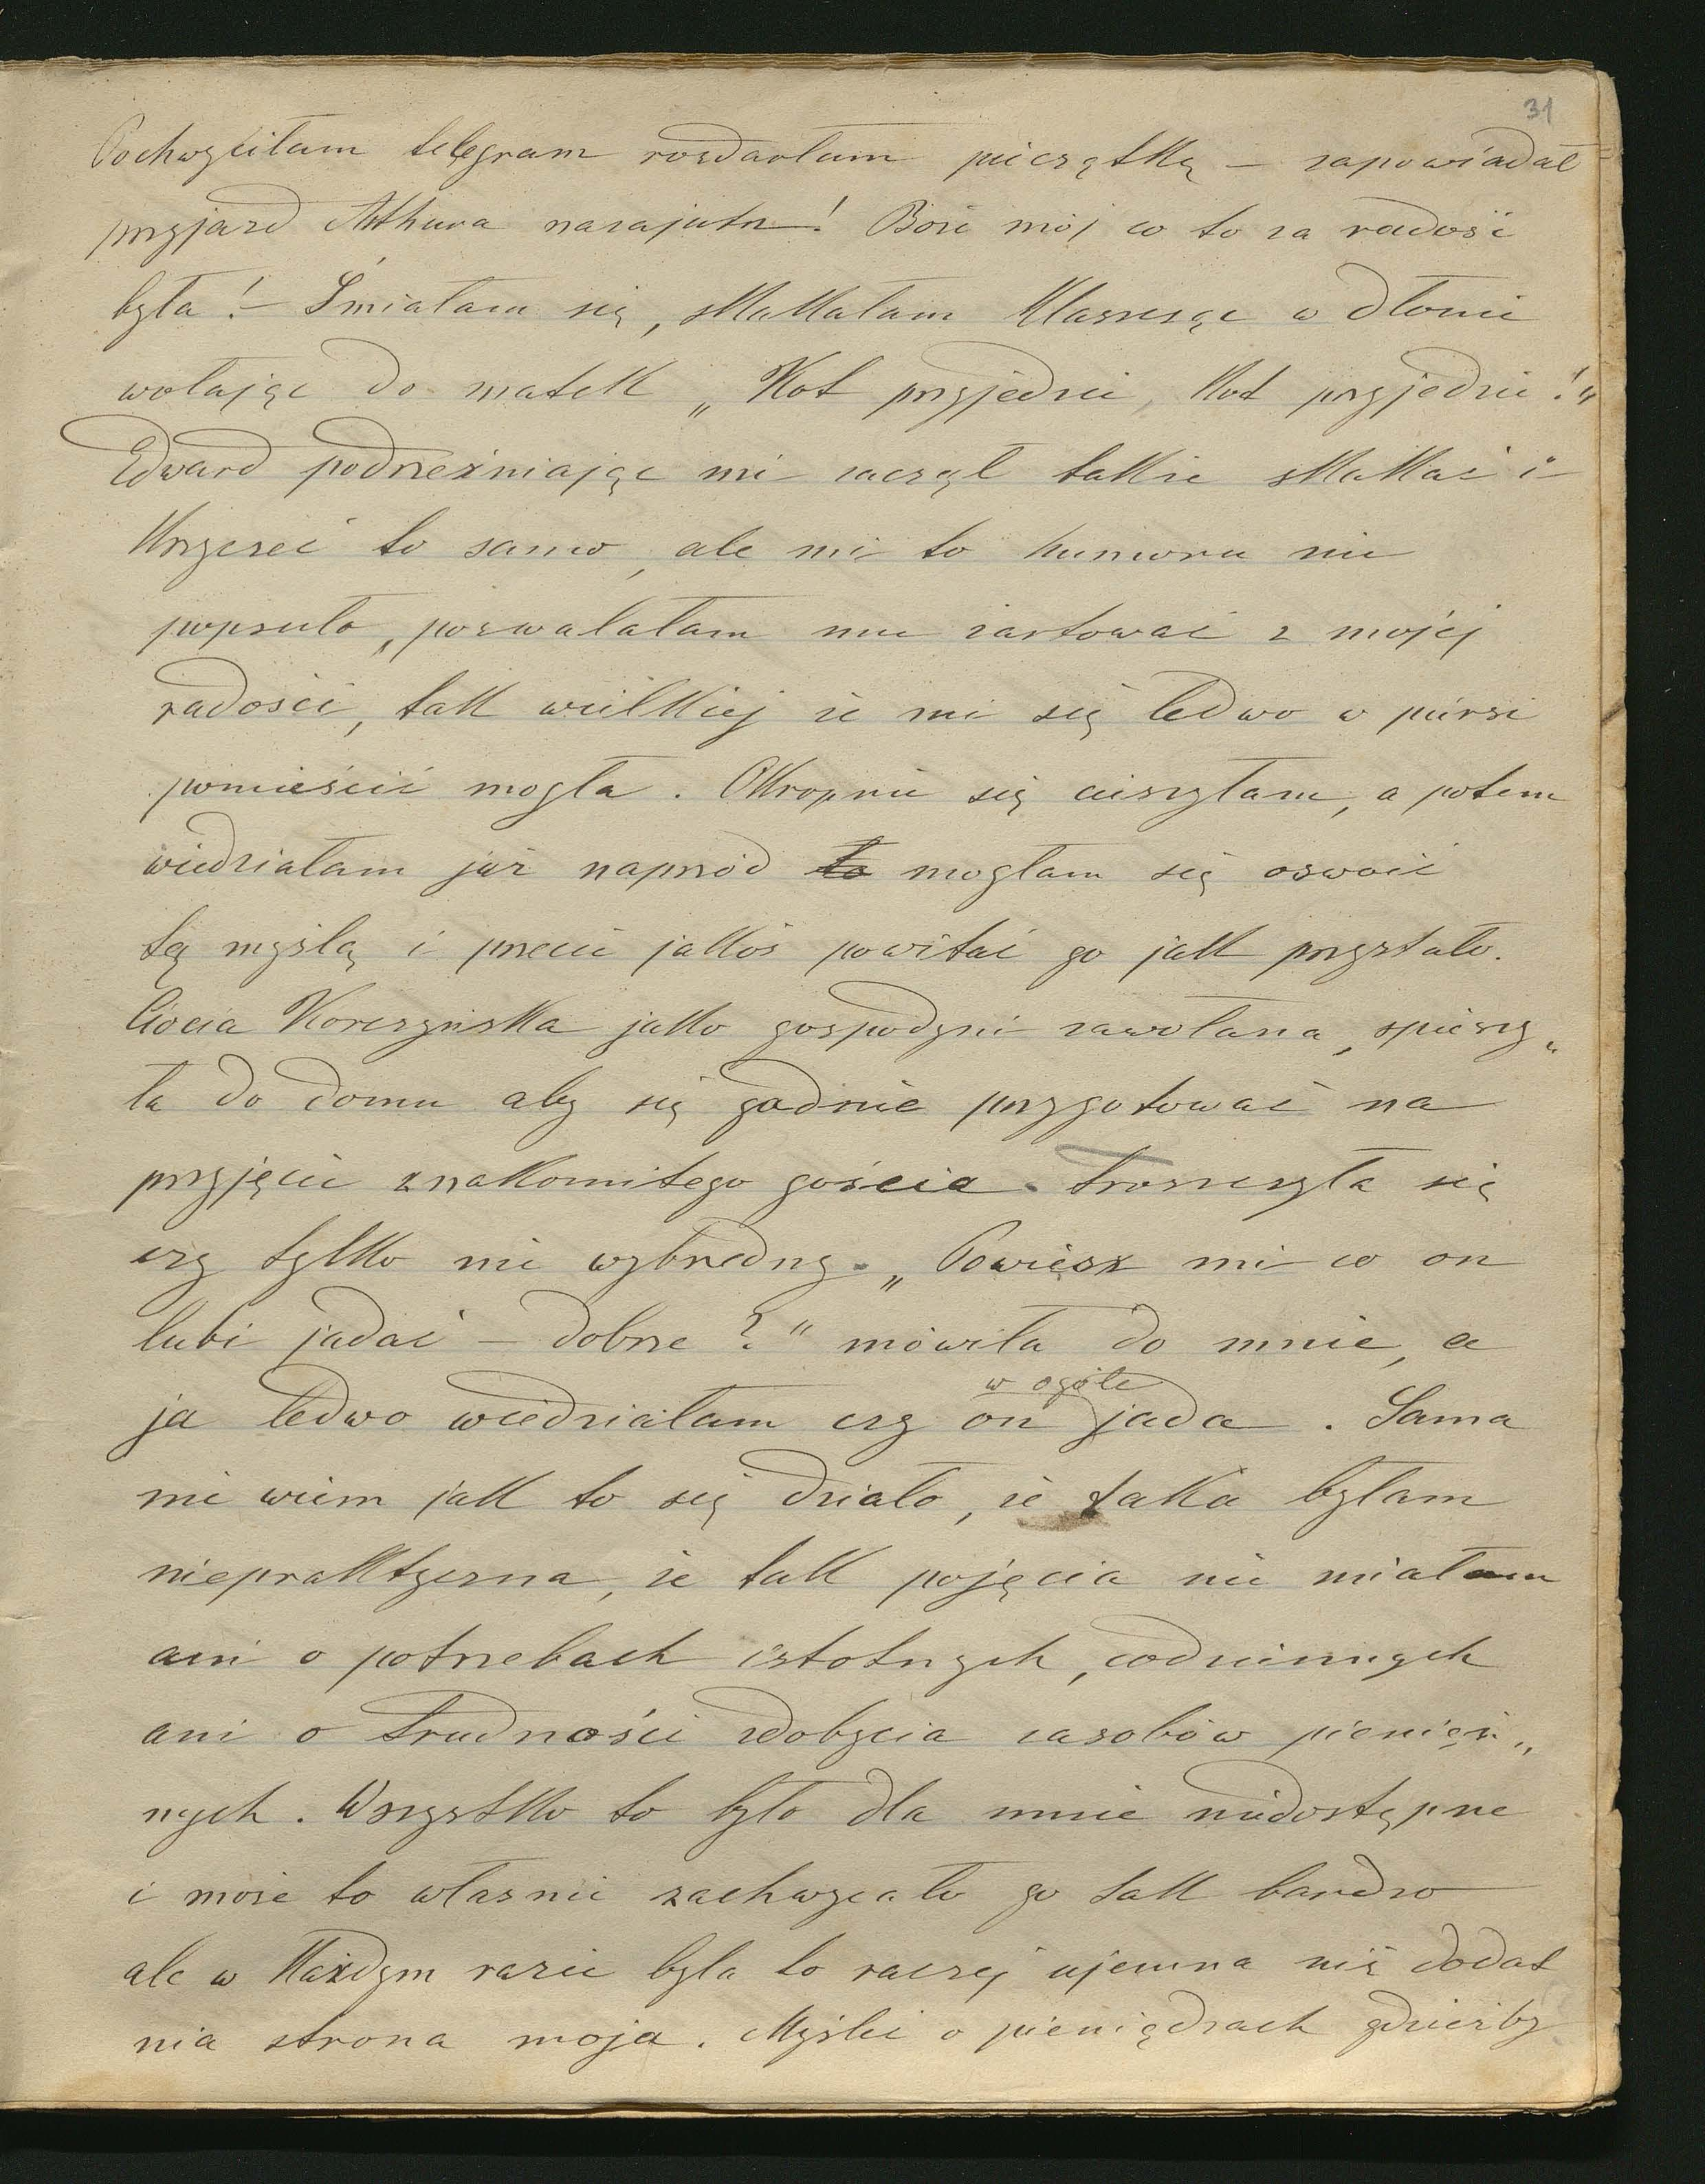 31
Pochwyciłam telegram rozdarłam pieczątkę – zapowiadał
przyjazd Arthura nazajutrz! Boże mój co to za radość
była! – Śmiałam się, skakałam klaszcząc w dłonie
wołając do matek „Kot przyjedzie, Kot przyjedzie!"
Edward podrzeźniając mi zaczął także skakać i
krzyczeć to samo, ale mi to humoru nie
popsuło, pozwalałam mu żartować z mojéj
radości, tak wielkiej że mi się ledwo w piersi
pomieścić mogła. Okropnie się cieszyłam, a potem
wiedziałam już naprzód to mogłam się oswoić
tą myślą i przecie jakoś powitać go jak przystało.
Ciocia Korczyńska jako gospodyni zawołana, spieszy„
ła do domu aby się godnie przygotować na
przyjęcie znakomitego gościa. Troszczyła się
czy tylko nie wybredny. „Powiesz mi co on
lubi jadać – dobrze?" mówiła do mnie, a
w ogóle
ja ledwo wiedziałam czy on jada. Sama
nie wiem jak to się działo, że taka byłam
niepraktyczna, że tak pojęcia nie miałam
ani o potrzebach istotnych, codziennych
ani o trudności zdobycia zasobów pienięż„
nych. Wszystko to było dla mnie niedostępne
i może to własnie zachwycało go tak bardzo
ale w każdym razie była to raczej ujemna niż dodat
nia strona moja. Myśleć o pieniądzach gdzieżby